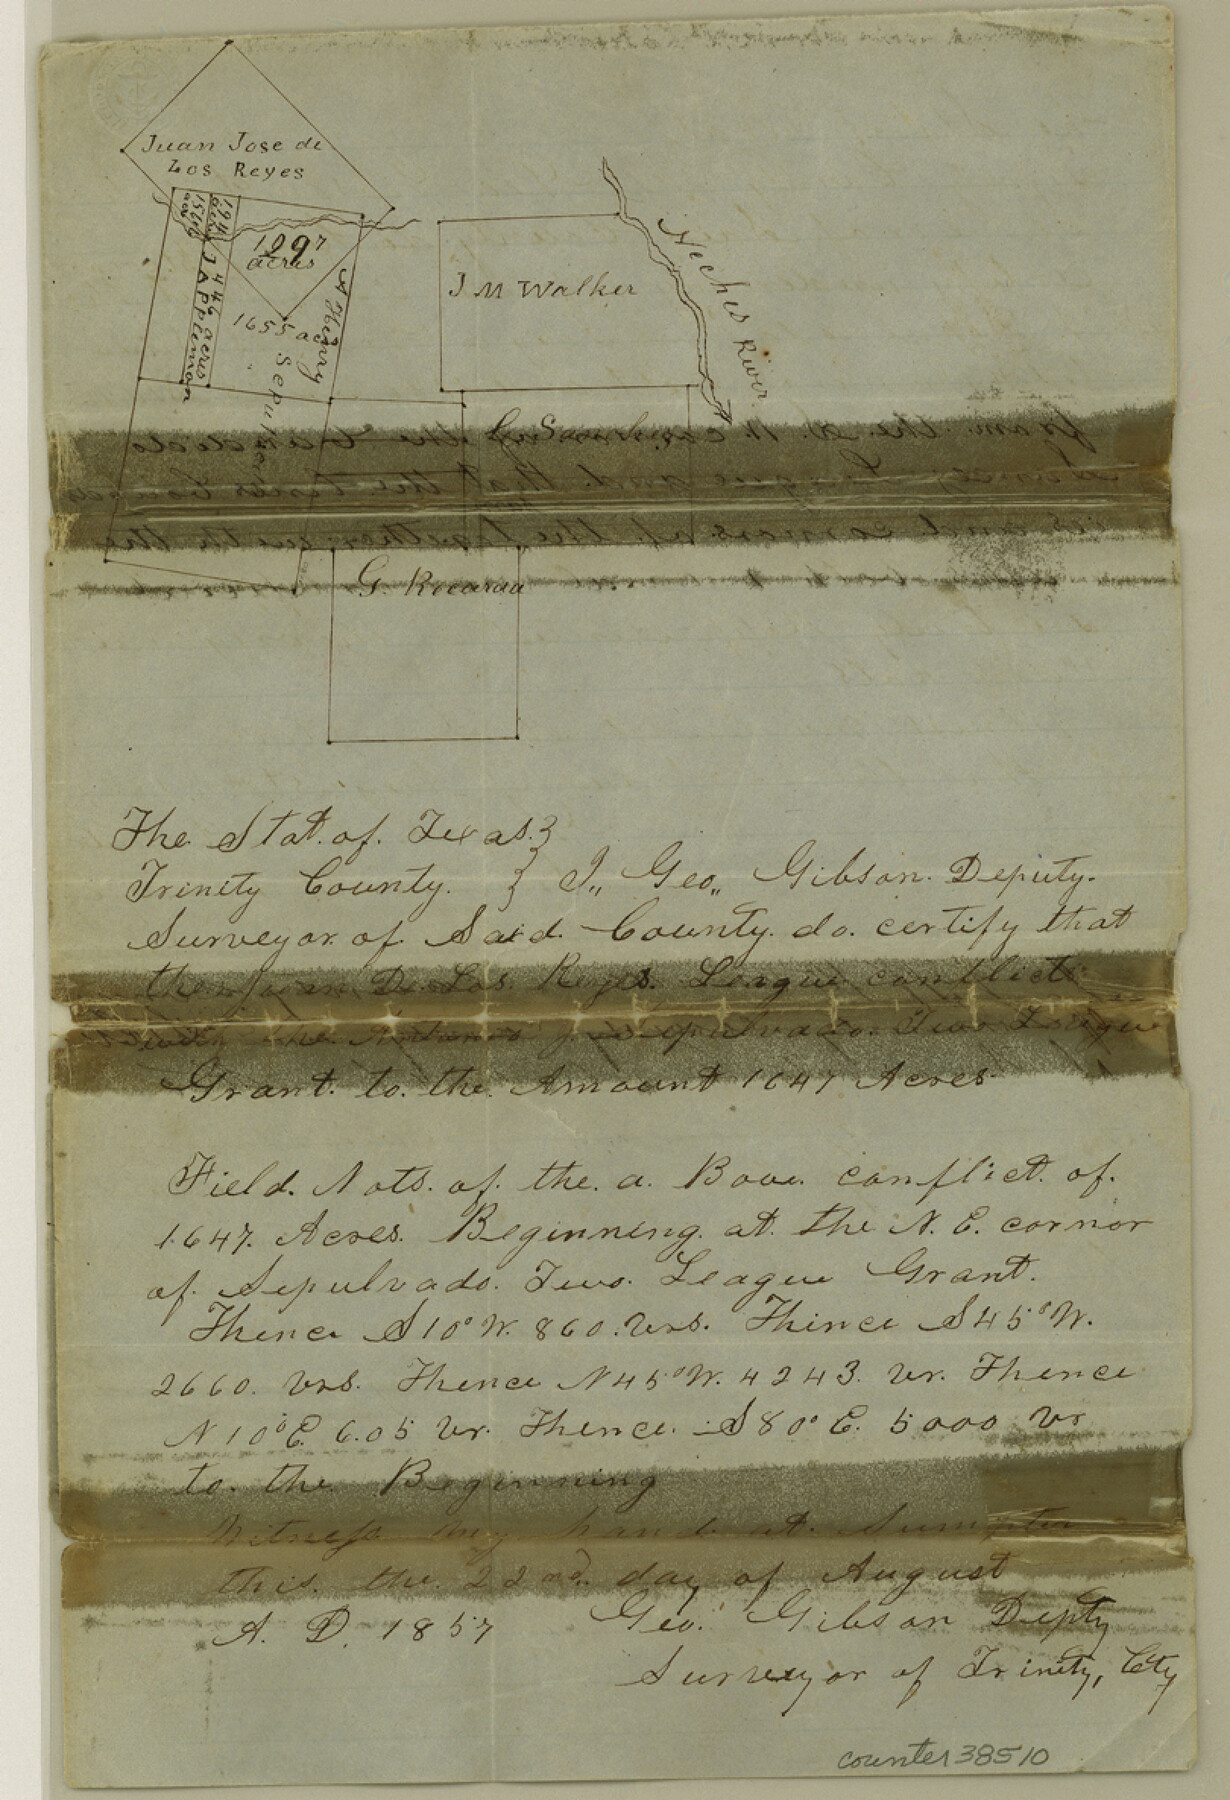 Juan Jose de
Los Reyes
194
acrs
156
1097
acres
J M Walker
Neches River
A Henry
446 acres
J Appleman
1655 ac
Sepulvado
G. Ricarda
The Stat. of. Texas. }
Trinity County. } I,, Geo,, Gibson. Deputy.
Surveyor. of. Said. County. do. certify that
the Juan De. Los. Reyes. League conflicts
with the Antonio Sepulvado. Two League
Grant. to. the. Amount 1647 Acres
Field. Nots. of. the. a. Bove. conflict. of.
1647. Acres. Beginning. at. the N. E. cornor
of. Sepulvado. Two. League Grant.
Thence S10°W. 860. vrs. Thince S45°W.
2660. vrs. Thence N45°W. 4243. vr. Thence
N10°E. 6.05 vr. Thence. S80°E. 5000 vr
to. the Beginning
Witness my hand. at. Sumpter
this. the. 22nd. day of August
A. D. 1857 Geo. Gibson Depty
Surveyor of Trinity, Cty
counter 38510